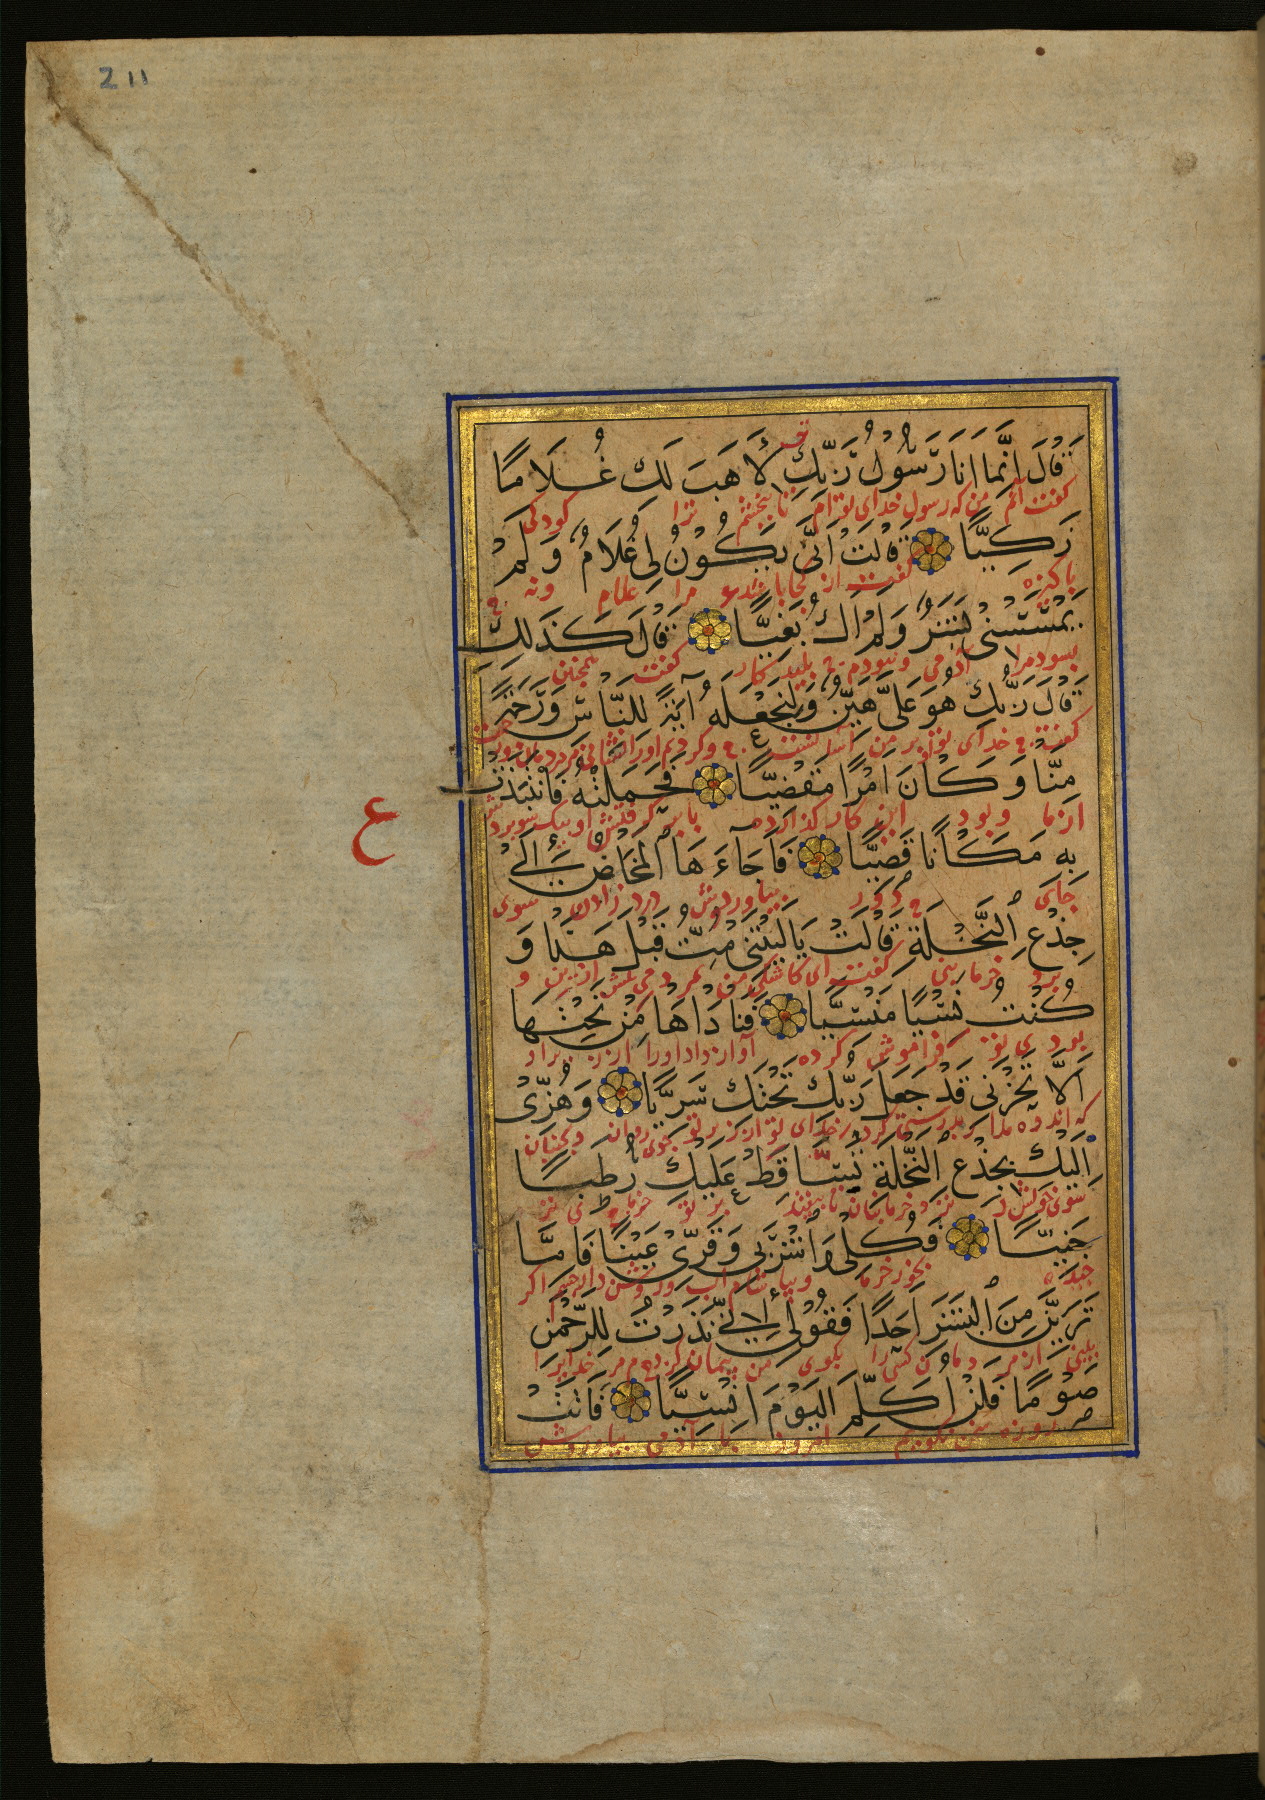 211
قَالَ اِنَّمَا اَنَا رَسُولُ رَبِّكِ لِاَهَبَ لَكِ غُلَامًا
گفت انم من که رسول خدای توام تا ببخشم ترا کودکی
زَكِيًّا قَالَتْ اَنّٰى يَكُوْنُ لِى غُلَامٌ وَلَمْ
پاکیزه گفت از کجا باشد مرا غلام ونه
يَمْسَسْنِى بَشَرٌ وَلَمْ اَكُ بَغِيًّا قَالَ كَذٰلِكِ
بسود مرا آدمی ونبودم پلید کار گفت همچنین
قَالَ رَبُّكِ هُوَ عَلَىَّ هَيِّنٌ وَلِنَجْعَلَهُ اٰيَةً لِلنَّاسِ وَرَحْمَةً
گفت خدای تو او بر من آسانست وکردیم اورا نشانی مر مردمان ورحمت
مِنَّا وَكَانَ اَمْرًا مَقْضِيًّا فَحَمَلَتْهُ فَانْتَبَذَتْ
ازما وبود این کار گذارده
ع
بِهِ مَكَانًا قَصِيًّا فَاَجَاءَهَا الْمَخَاضُ اِلٰى
جای دور بیاوردش درد زادن سوی
جِذْعِ النَّخْلَةِ قَالَتْ يَا لَيْتَنِى مِتُّ قَبْلَ هٰذَا وَ
خرما بنی گفت ای کاشکی من بمردمی پیش ازین و
كُنْتُ نَسْيًا مَنْسِيًّا فَنَادَاهَا مِنْ تَحْتِهَا
بودمی فراموش کرده آواز داد اورا از زیر او
اَلَّا تَحْزَنِى قَدْ جَعَلَ رَبُّكِ تَحْتَكِ سَرِيًّا وَهُزِّى
که اندوه مدار بدرستی کرد خدای تو از زیر تو جوی روان وبجنبان
اِلَيْكِ بِجِذْعِ النَّخْلَةِ تُسَاقِطْ عَلَيْكِ رُطَبًا
سوی خویش خرما بنان تا بیفتد بر تو خرمای تر
جَنِيًّا فَكُلِى وَاشْرَبِى وَقَرِّى عَيْنًا فَاِمَّا
چیده بخور خرما وبیاشام آب وروشن دار چشم اگر
تَرَيِنَّ مِنَ الْبَشَرِ اَحَدًا فَقُولِى اِنِّى نَذَرْتُ لِلرَّحْمٰنِ
ببینی از مردمان کسی را بگوی من پیمان کردم مر خدایرا
صَوْمًا فَلَنْ اُكَلِّمَ الْيَوْمَ اِنْسِيًّا فَاَتَتْ
روزه سخن نگویم امروز با آدمی بیاوردش